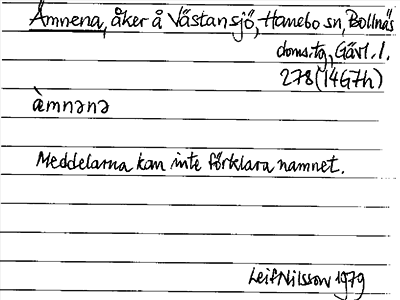 Ämnena, åker å Västansjö, Hanebo sn, Bollnäs
doms.tg, Gävl. l.
278 (14G7h)
àmnənə
Meddelarna kan inte förklara namnet.
Leif Nilsson 1979